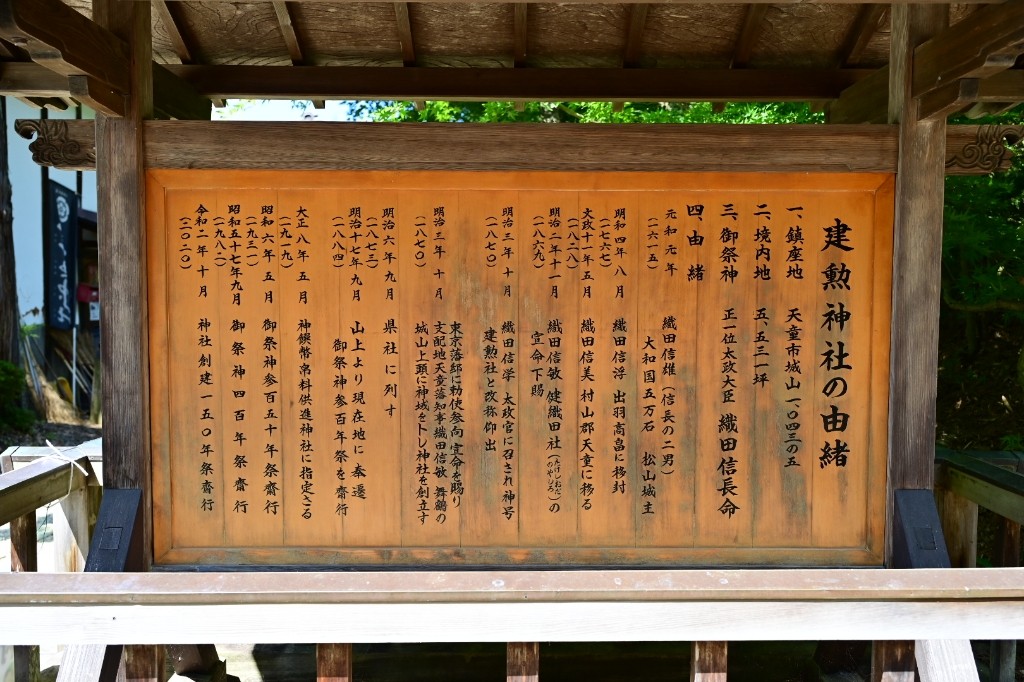 建勲神社の由緒
一、鎮座地　天童市城山一、〇四三の五
二、境内地　五、五三一坪
三、御祭神　正一位太政大臣　織田信長命
四、由緒
元和元年　織田信雄（信長の二男）
（一六一五）　大和国五万石　松山城主
明和四年八月　織田信浮　出羽高畠に移封
（一七六七）
文政十一年五月　織田信美　村山郡天童に移る
（一八二八）
明治二年十一月　織田信敏　健織田社（たけしおだのやしろ）の
（一八六九）　宣命下賜
明治三年十月　織田信学　太政官に召され神号
（一八七〇）　建勲社と改称仰出
東京藩邸に勅使参向　宣命を賜り
明治三年十月　支配地天童藩知事織田信敏　舞鶴の
（一八七〇）　城山上頭に神域をトし神社を創立す
明治六年九月　県社に列す
（一八七三）
明治十七年九月　山上より現在地に奉遷
（一八八四）　御祭神参百年祭を齋行
大正八年五月　神饌幣帛料供進神社に指定さる
（一九一九）
昭和六年五月　御祭神参百五十年祭齋行
（一九三一）
昭和五十七年九月　御祭神四百年祭齋行
（一九八二）
令和二年十月　神社創建一五〇年祭齋行
（二〇二〇）